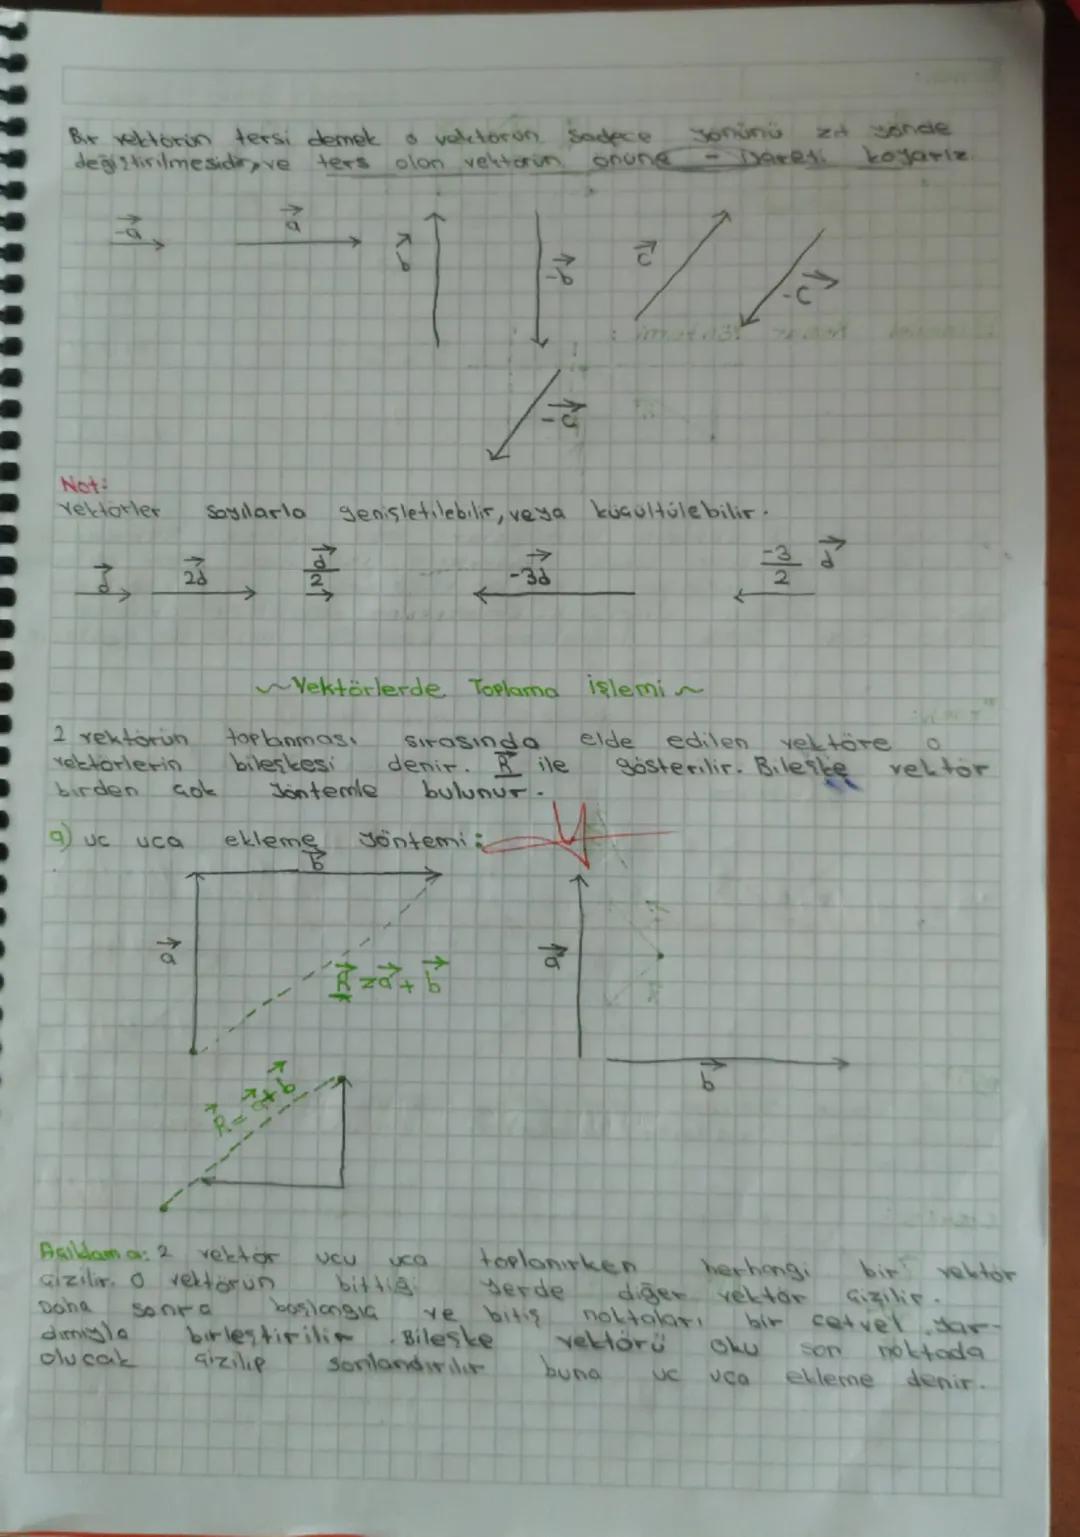 Bir vektörün tersi demek o vektörün sadece yönünü zıt yönde
değiştirilmesidir, ve ters olan vektörün önüne - işareti koyarız.
-a
a
b
-b
c
-c
-c
Not:
Vektörler sayılarla genişletilebilir, veya küçültülebilir.
d
2d
d/2
-3d
-3/2 d
~Vektörlerde Toplama işlemi~
2 vektörün toplanması sırasında elde edilen vektöre o
vektörlerin bileşkesi denir. R ile gösterilir. Bileşke vektör
birden çok yöntemle bulunur.
a) uc uca ekleme yöntemi:
b
a
R = a + b
a
b
R = a + b
Açıklama: 2 vektör ucu uca toplanırken herhangi bir vektör
çizilir. O vektörün bittiği yerde diğer vektör çizilir.
Daha sonra başlangıç ve bitiş noktaları bir cetvel yar-
dımıyla birleştirilir. Bileşke vektörü oku son noktada
olucak çizilip sonlandırılır buna uc uca ekleme denir.